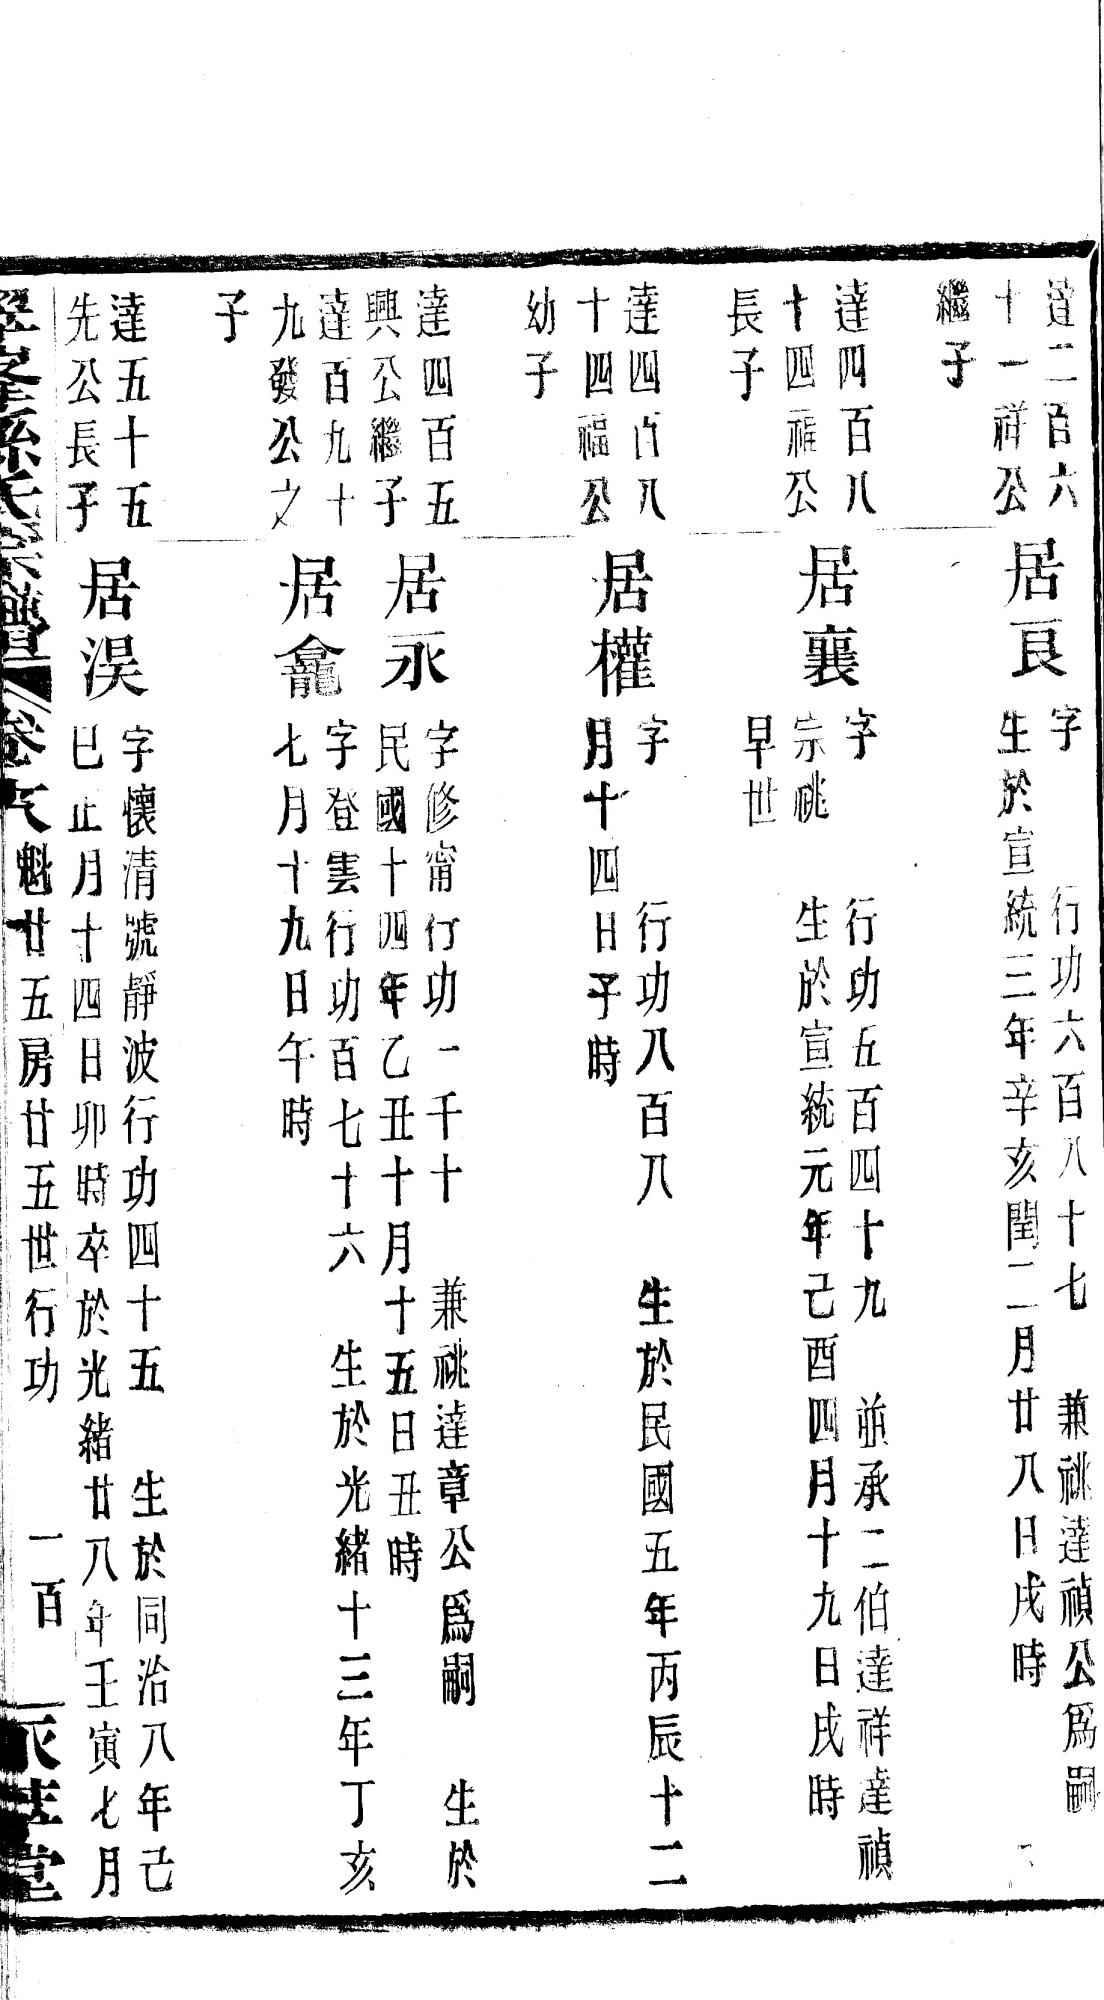 達二百六
十一祥公
繼子
居艮
字 行功六百八十七 兼祧達禎公爲嗣
生於宣統三年辛亥閏二月廿八日戌時
達四百八
十四福公
長子
居襄
字 行功五百四十九 並承二伯達祥達禎
宗祧 生於宣統元年己酉四月十九日戌時
早世
達四百八
十四福公
幼子
居權
字 行功八百八 生於民國五年丙辰十二
月十四日子時
達四百五
興公繼子
居永
字修甯行功一千十 兼祧達章公爲嗣 生於
民國十四年乙丑十月十五日丑時
達百九十
九發公之
子
居龕
字登雲行功百七十六 生於光緒十三年丁亥
七月十九日午時
達五十五
先公長子
居淏
字懷清號靜波行功四十五 生於同治八年己
巳正月十四日卯時卒於光緒廿八年壬寅七月
孫氏宗譜 卷 魁廿五房廿五世行功 一百 堂